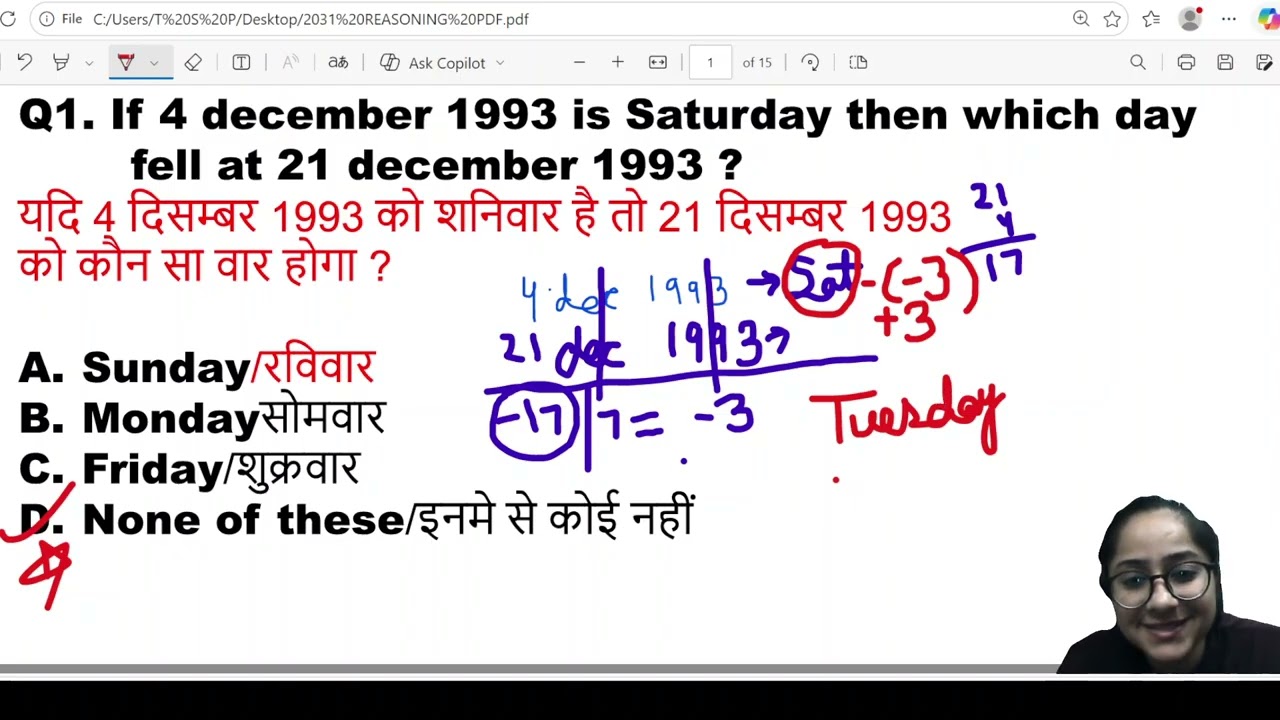 File C:/Users/T%20S%20P/Desktop/2031%20REASONING%20PDF.pdf
Ask Copilot 1 of 15
Q1. If 4 december 1993 is Saturday then which day
fell at 21 december 1993 ?
यदि 4 दिसम्बर 1993 को शनिवार है तो 21 दिसम्बर 1993
को कौन सा वार होगा ?
21
4
17
4 dec 1993 → Sat -(-3)
+3
21 dec 1993 →
-17 7 = -3
Tuesday
A. Sunday/रविवार
B. Mondayसोमवार
C. Friday/शुक्रवार
D. None of these/इनमे से कोई नहीं